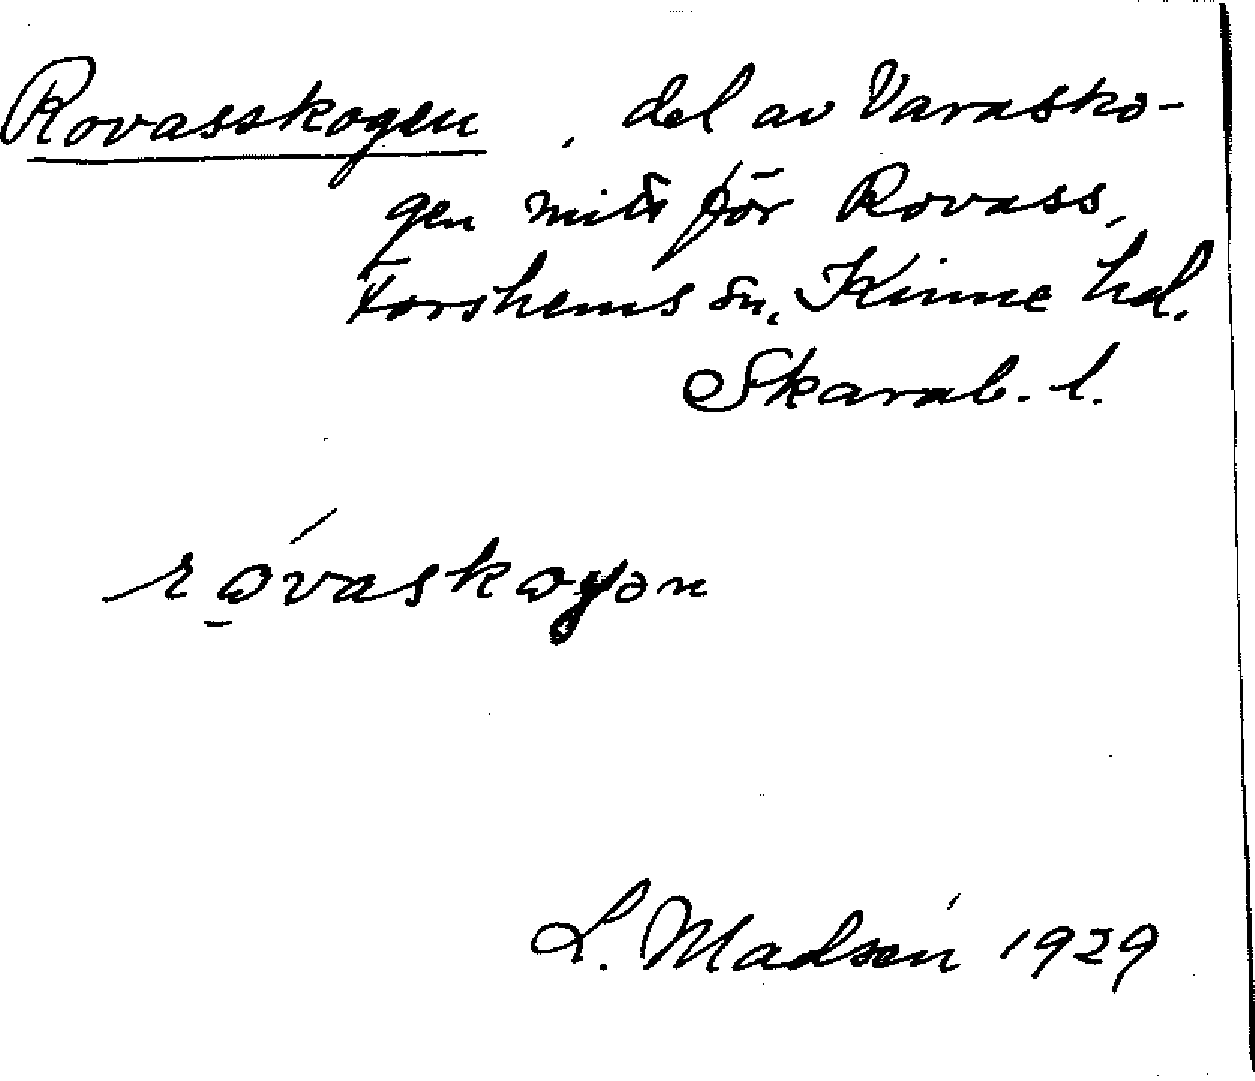 Rovasskogen, del av Varasko-
gen mitt för Rovass,
Forshems sn, Kinne hd.
Skarab. l.
rǫ́vaskogən
L. Madsén 1929